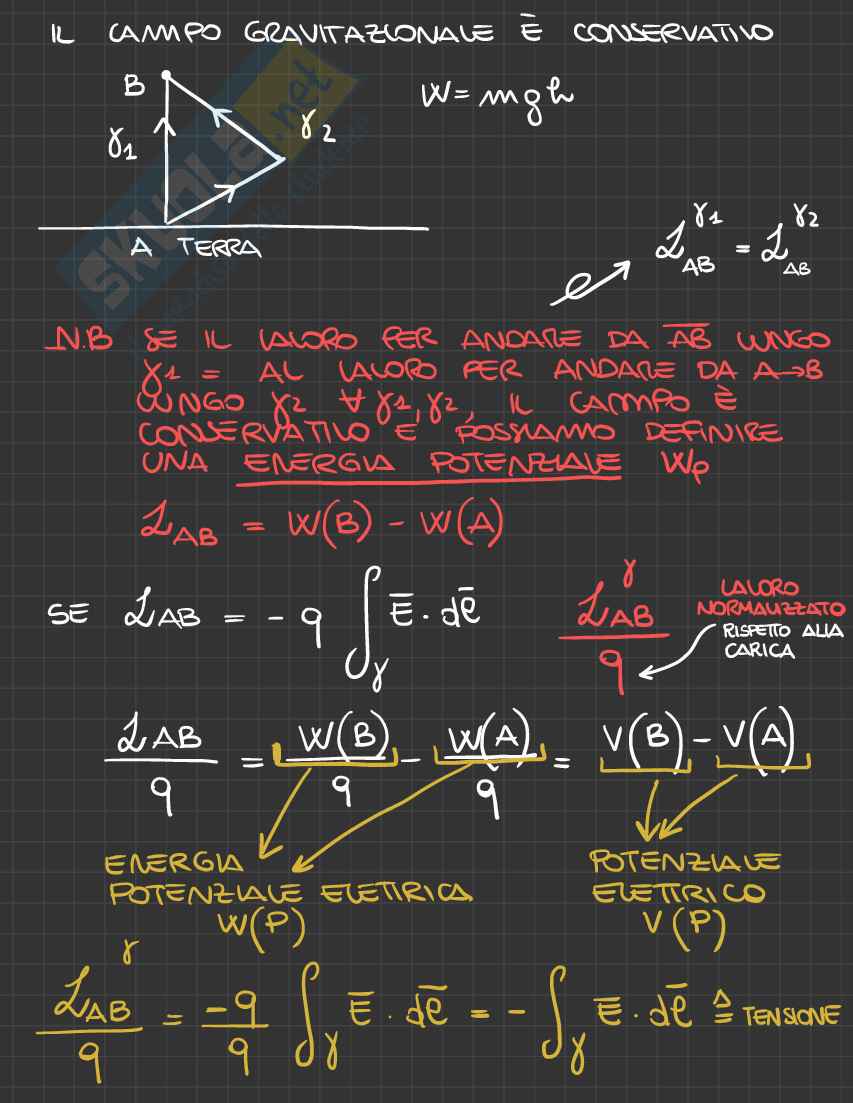 IL CAMPO GRAVITAZIONALE È CONSERVATIVO
B
W = mgh
γ1
γ2
A TERRA
L_AB^γ1 = L_AB^γ2
SKUOLA.net
N.B SE IL LAVORO PER ANDARE DA A̅B̅ LUNGO
γ1 = AL LAVORO PER ANDARE DA A→B
LUNGO γ2 ∀ γ1, γ2, IL CAMPO È
CONSERVATIVO E POSSIAMO DEFINIRE
UNA ENERGIA POTENZIALE Wp
L_AB = W(B) - W(A)
SE L_AB = - q ∫_γ E̅ · dl̅
L_AB^γ / q
LAVORO
NORMALIZZATO
RISPETTO ALLA
CARICA
L_AB / q = W(B) / q - W(A) / q = V(B) - V(A)
ENERGIA
POTENZIALE ELETTRICA
W(P)
POTENZIALE
ELETTRICO
V(P)
L_AB^γ / q = -q / q ∫_γ E̅ · dl̅ = - ∫_γ E̅ · dl̅ ≜ TENSIONE